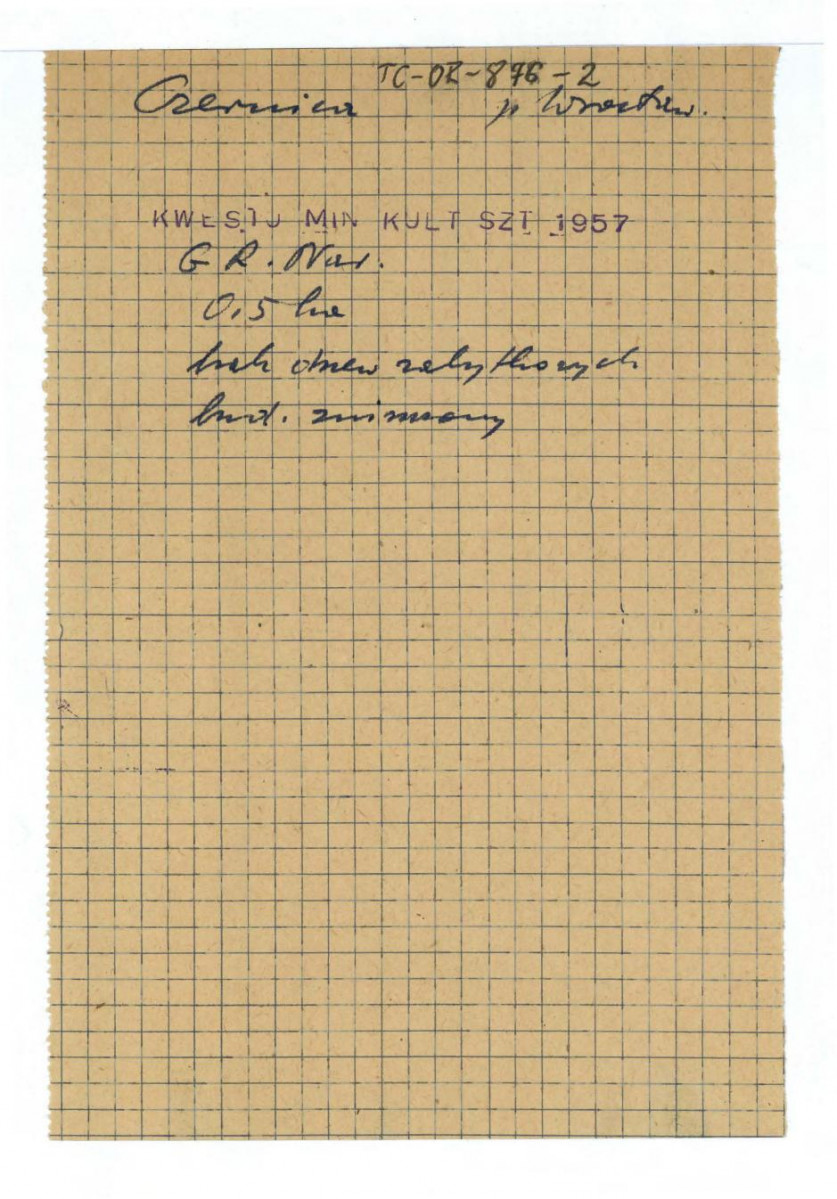 TC-OR-876-2
Czernica p Wrocław.
KWESTJ MIN KULT SZT 1957
G R. Nar.
0,5 ha
brak drzew zabytkowych
bud. zniszczony